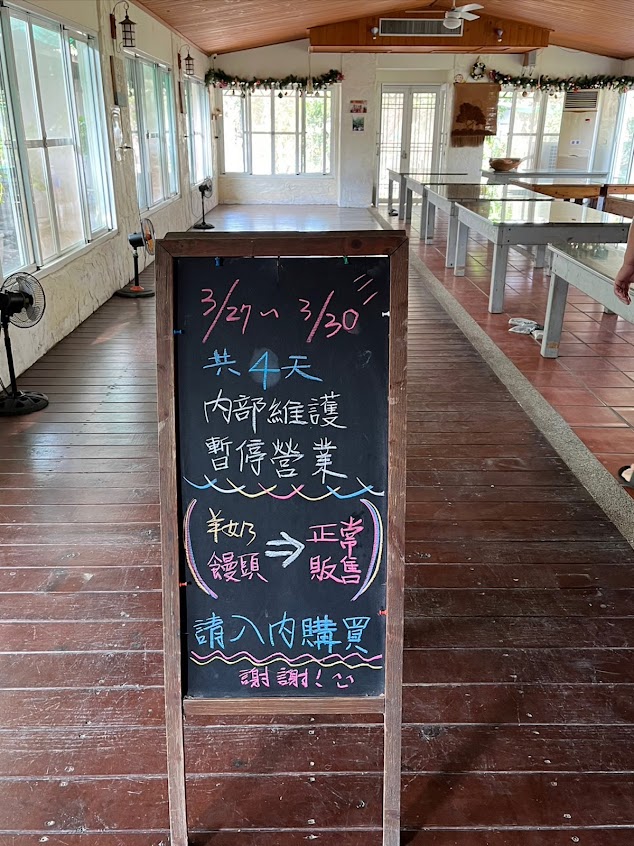 3/27～3/30
共4天
內部維護
暫停營業
(羊奶 ⇒ 正常
饅頭 販售)
請入內購買
謝謝!